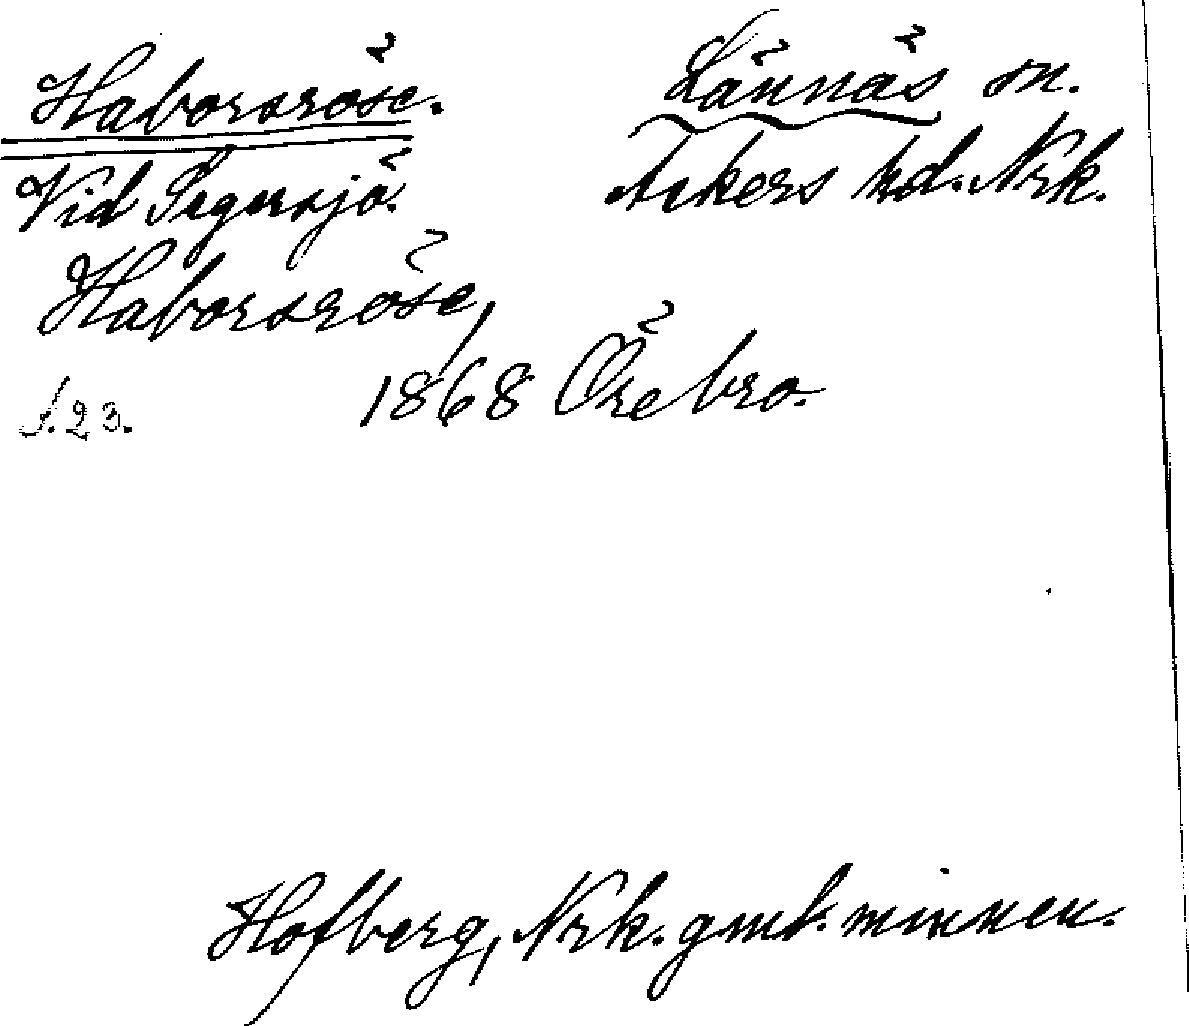 Haborsröse.
Lännäs sn.
Vid Segersjö.
Askers hd. Nrk.
Haborsröse,
1868 Örebro.
S. 23.
Hofberg, Nrk. gml. minnen.